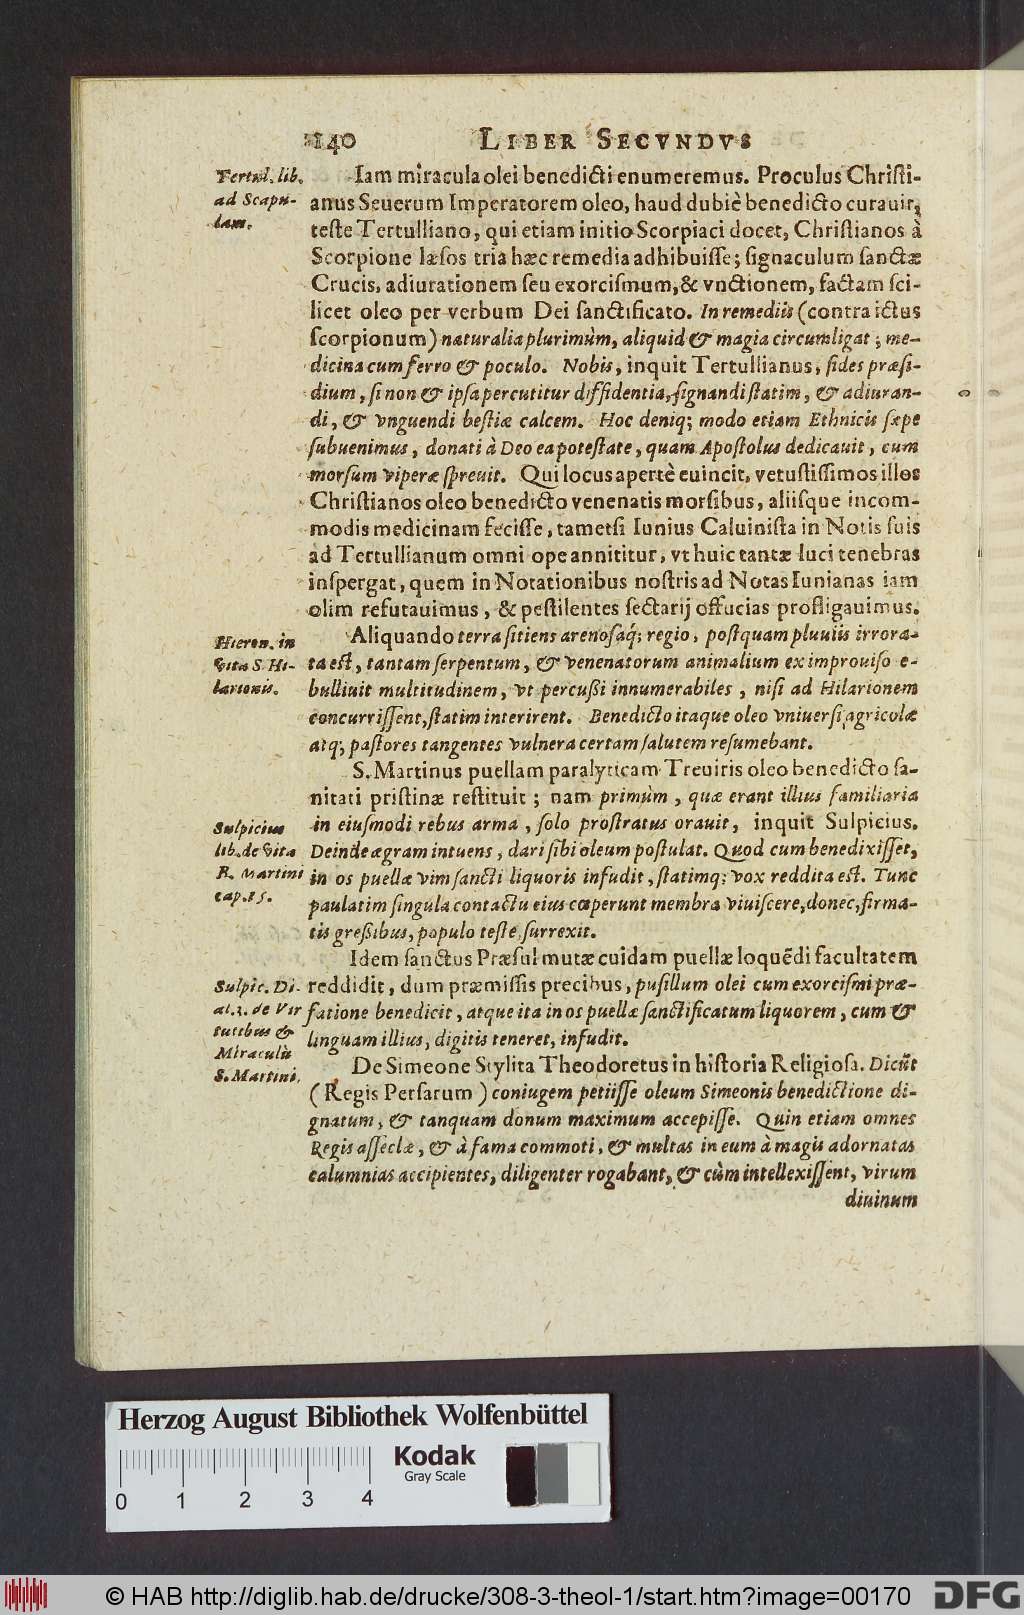 140 LIBER SECVNDVS
Tertul. lib.
ad Scapu-
lam.
Iam miracula olei benedicti enumeremus. Proculus Christi-
anus Seuerum Imperatorem oleo, haud dubiè benedicto curauit,
teste Tertulliano, qui etiam initio Scorpiaci docet, Christianos à
Scorpione læsos tria hæc remedia adhibuisse; signaculum sanctæ
Crucis, adiurationem seu exorcismum, & vnctionem, factam sci-
licet oleo per verbum Dei sanctificato. In remediis (contra ictus
scorpionum) naturalia plurimùm, aliquid & magia circumligat; me-
dicina cum ferro & poculo. Nobis, inquit Tertullianus, fides præsi-
dium, si non & ipsa percutitur diffidentia, signandi statim, & adiuran-
di, & vnguendi bestiæ calcem. Hoc deniq; modo etiam Ethnicis sæpe
subuenimus, donati à Deo ea potestate, quam Apostolus dedicauit, cum
morsum viperæ spreuit. Qui locus apertè euincit, vetustissimos illos
Christianos oleo benedicto venenatis morsibus, aliisque incom-
modis medicinam fecisse, tametsi Iunius Caluinista in Notis suis
ad Tertullianum omni ope annititur, vt huic tantæ luci tenebras
inspergat, quem in Notationibus nostris ad Notas Iunianas iam
olim refutauimus, & pestilentes sectarij offucias profligauimus.
Hieron. in
vita S. Hi-
larionis.
Aliquando terra sitiens arenosaq; regio, postquam pluuiis irrora-
ta est, tantam serpentum, & venenatorum animalium ex improuiso e-
bulliuit multitudinem, vt percussi innumerabiles, nisi ad Hilarionem
concurrissent, statim interirent. Benedicto itaque oleo vniuersi agricolæ
atq; pastores tangentes vulnera certam salutem resumebant.
S. Martinus puellam paralyticam Treuiris oleo benedicto sa-
nitati pristinæ restituit; nam primùm, quæ erant illius familiaria
in eiusmodi rebus arma, solo prostratus orauit, inquit Sulpicius.
Deinde ægram intuens, dari sibi oleum postulat. Quod cum benedixisset,
in os puellæ vim sancti liquoris infudit, statimq; vox reddita est. Tunc
paulatim singula contactu eius cœperunt membra viuiscere, donec, firma-
tis gressibus, populo teste surrexit.
Sulpicius
lib. de vita
B. Martini
cap. 15.
Idem sanctus Præsul mutæ cuidam puellæ loquẽdi facultatem
reddidit, dum præmissis precibus, pusillum olei cum exorcismi præ-
fatione benedicit, atque ita in os puellæ sanctificatum liquorem, cum &
linguam illius, digitis teneret, infudit.
Sulpic. Di-
al. 3. de Vir
tutibus &
Miraculis
S. Martini.
De Simeone Stylita Theodoretus in historia Religiosa. Dicũt
(Regis Persarum) coniugem petiisse oleum Simeonis benedictione di-
gnatum, & tanquam donum maximum accepisse. Quin etiam omnes
Regis asseclæ, & à fama commoti, & multas in eum à magis adornatas
calumnias accipientes, diligenter rogabant, & cùm intellexissent, virum
diuinum
Herzog August Bibliothek Wolfenbüttel
Kodak
Gray Scale
0 1 2 3 4
© HAB http://diglib.hab.de/drucke/308-3-theol-1/start.htm?image=00170
DFG